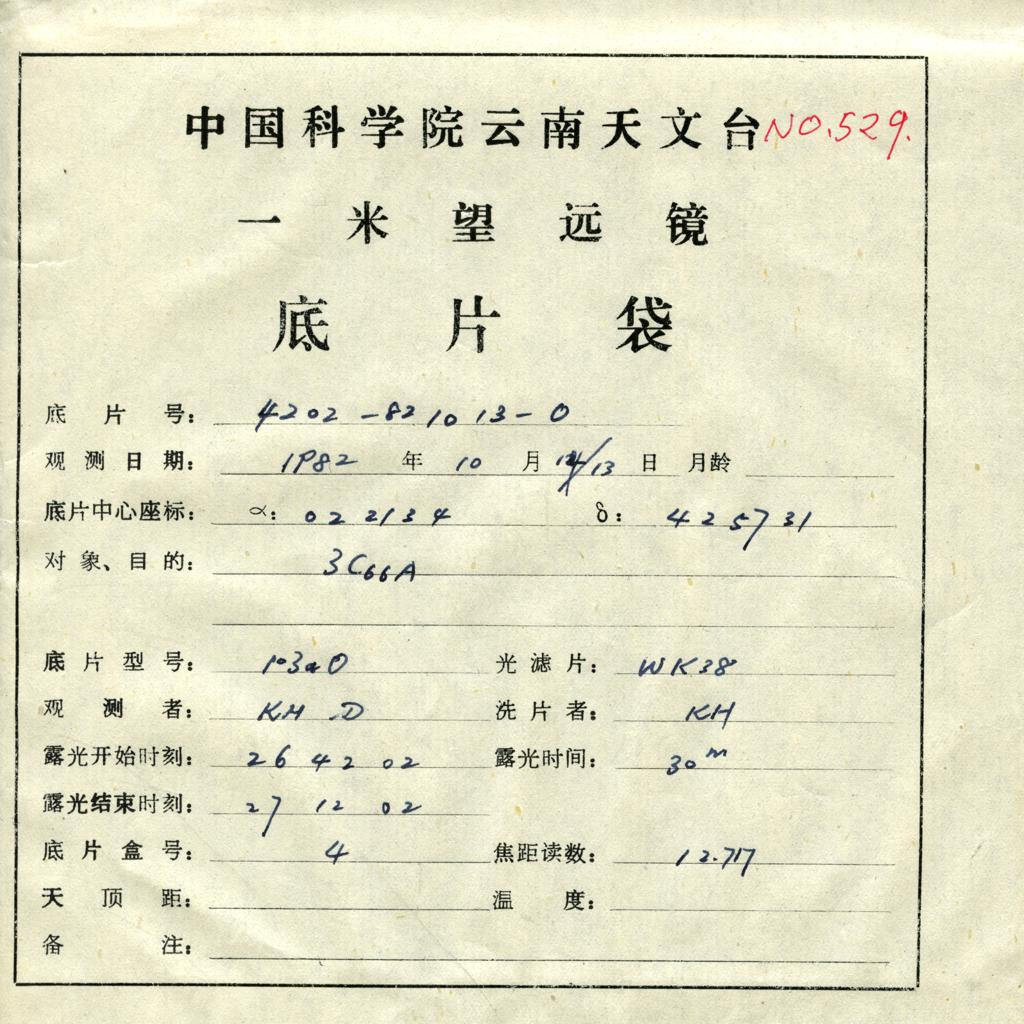 中国科学院云南天文台 NO.529.
一米望远镜
底片袋
底片号: 4202-821013-0
观测日期: 1982 年 10 月 /13 日 月龄
底片中心座标: α: 02 21 34 δ: 42 57 31
对象、目的: 3C66A
底片型号: 103aO 光滤片: WK38
观测者: KH D 洗片者: KH
露光开始时刻: 26 42 02 露光时间: 30m
露光结束时刻: 27 12 02
底片盒号: 4 焦距读数: 12.717
天顶距: 温度:
备注: